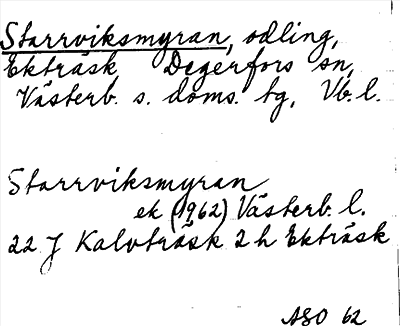 Starrviksmyran, odling,
Ekträsk Degerfors sn,
Västerb. s. doms. tg, Vb. l.
Starrviksmyran
ek (1962) Västerb. l.
22 J Kalvträsk 2 h Ekträsk
ASO 62